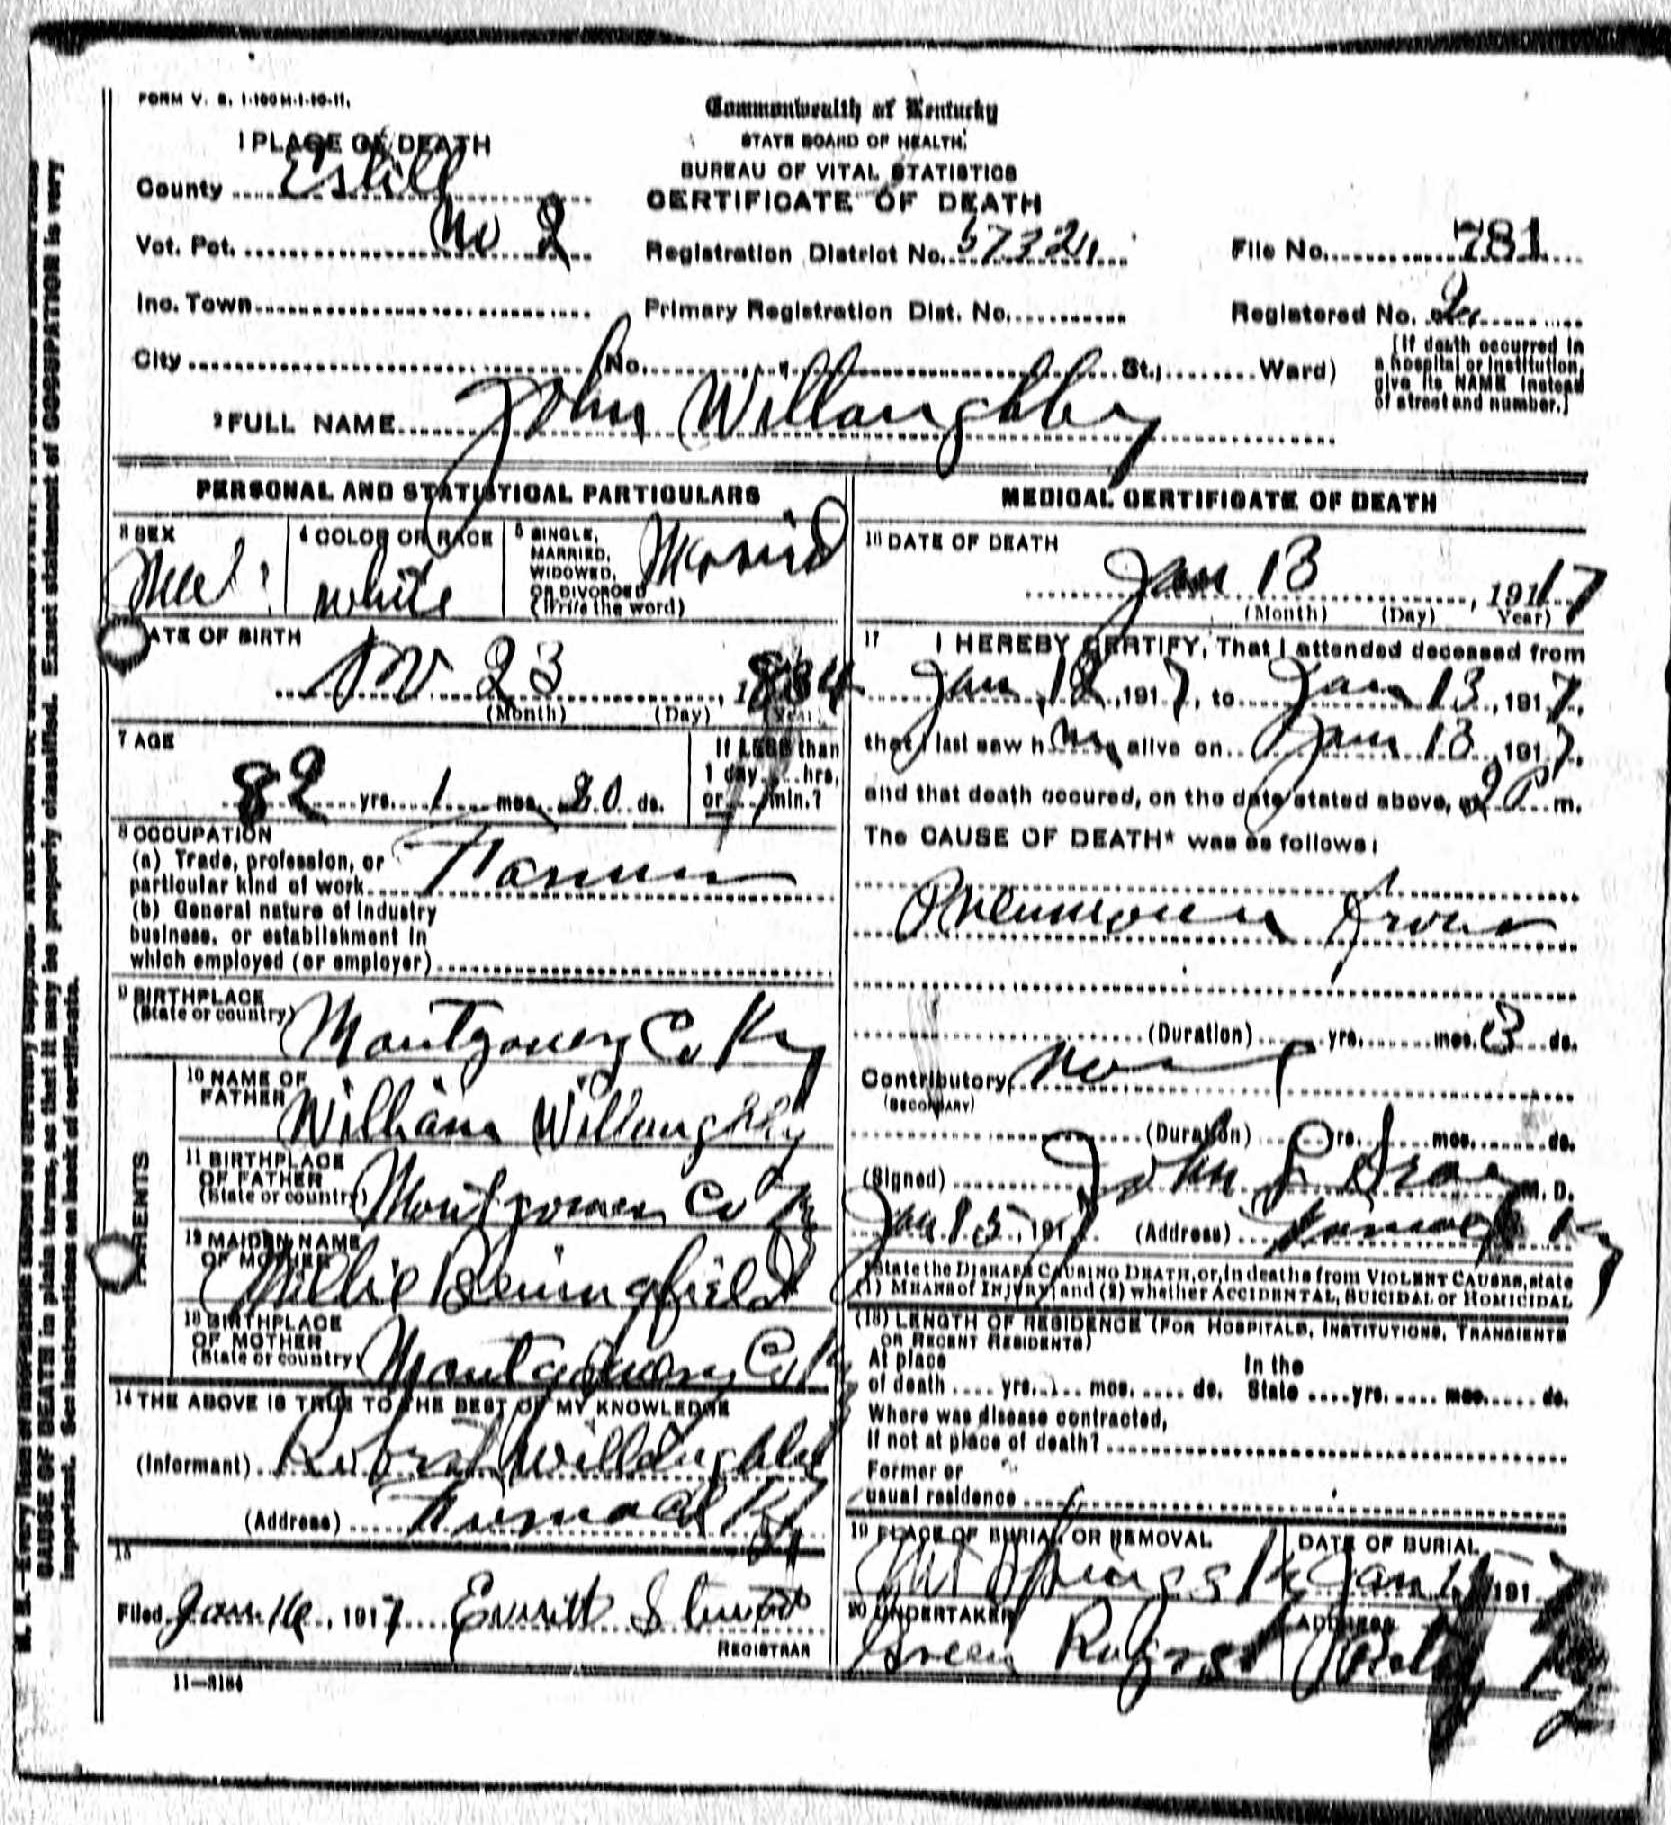 FORM V. S. 1-100M-1-10-11.
Commonwealth of Kentucky
STATE BOARD OF HEALTH.
BUREAU OF VITAL STATISTICS
CERTIFICATE OF DEATH
1 PLACE OF DEATH
County Estill
Vot. Pct. No 2
Registration District No.
File No. 781
Inc. Town
Primary Registration Dist. No.
Registered No.
City (No. St.; Ward)
(If death occurred in
a hospital or institution,
give its NAME instead
of street and number.)
2 FULL NAME John Willoughby
PERSONAL AND STATISTICAL PARTICULARS
3 SEX
4 COLOR OR RACE white
5 SINGLE, MARRIED, WIDOWED, OR DIVORCED (Write the word)
DATE OF BIRTH
23, 1834
(Month) (Day) (Year)
7 AGE
82 yrs. 1 mos. 20 ds.
If LESS than 1 day hrs. or min.?
8 OCCUPATION
(a) Trade, profession, or
particular kind of work Farmer
(b) General nature of industry
business, or establishment in
which employed (or employer)
9 BIRTHPLACE
(State or country) Montgomery Co Ky
PARENTS
10 NAME OF FATHER William Willoughby
11 BIRTHPLACE OF FATHER (State or country) Montgomery Co Ky
12 MAIDEN NAME OF MOTHER Millie
13 BIRTHPLACE OF MOTHER (State or country) Montgomery Co Ky
14 THE ABOVE IS TRUE TO THE BEST OF MY KNOWLEDGE
(Informant) Robert Willoughby
(Address)
15
Filed Jan. 16, 1917
REGISTRAR
11—3184
MEDICAL CERTIFICATE OF DEATH
16 DATE OF DEATH
Jan 13, 1917
(Month) (Day) Year)
17 I HEREBY CERTIFY, That I attended deceased from
Jan 12, 1917, to Jan 13, 1917,
that I last saw him alive on Jan 13, 1917,
and that death occured, on the date stated above, at 2 P m.
The CAUSE OF DEATH* was as follows:
(Duration) yrs. mos. 3 ds.
Contributory
(SECONDARY)
(Duration) yrs. mos. ds.
(Signed) John M. D.
Jan 15, 1917. (Address) Ky
*State the DISEASE CAUSING DEATH, or, in deaths from VIOLENT CAUSES, state
(1) MEANS of INJURY; and (2) whether ACCIDENTAL, SUICIDAL or HOMICIDAL
(18) LENGTH OF RESIDENCE (FOR HOSPITALS, INSTITUTIONS, TRANSIENTS
OR RECENT RESIDENTS)
At place of death yrs. mos. ds. In the State yrs. mos. ds.
Where was disease contracted,
if not at place of death?
Former or
usual residence
19 PLACE OF BURIAL OR REMOVAL
DATE OF BURIAL
Springs Ky Jan 191
20 UNDERTAKER
ADDRESS
Green
N. B.—Every
CAUSE OF DEATH in plain terms, so that it may be properly classified. Exact statement of OCCUPATION is very
important. See instructions on back of certificate.